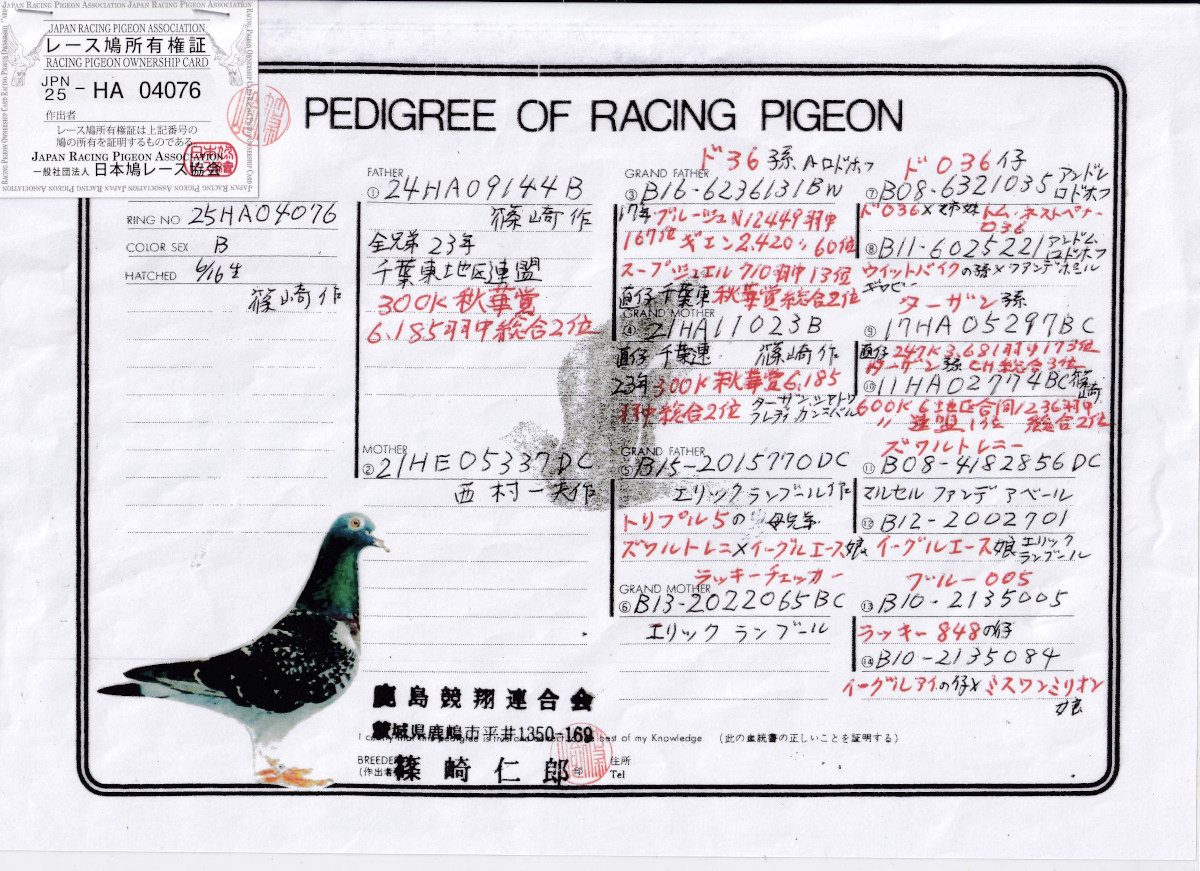 JAPAN RACING PIGEON ASSOCIATION JAPAN RACING PIGEON ASSOCIATION
JAPAN RACING PIGEON ASSOCIATION
レース鳩所有権証
RACING PIGEON OWNERSHIP CARD
JPN
25 - HA 04076
作出者
レース鳩所有権証は上記番号の
鳩の所有を証明するものである
JAPAN RACING PIGEON ASSOCIATION
一般社団法人 日本鳩レース協会
PEDIGREE OF RACING PIGEON
RING NO 25HA04076
COLOR SEX B
HATCHED 6/16生
篠崎作
FATHER
① 24HA09144B
篠崎作
全兄弟 23年
千葉東地区連盟
300K 秋華賞
6.185羽中総合2位
MOTHER
② 21HE05337DC
西村一夫作
ド36 孫 Aロドホフ
GRAND FATHER
③ B16-6236131BW
17年ブルージュN12449羽中
167位 ギエン2.420〃60位
スープジュエル710羽中13位
直仔 千葉東 秋華賞総合2位
GRAND MOTHER
④ 21HA11023B
直仔 千葉連 篠崎作
23年300K秋華賞6.185
羽中総合2位
GRAND FATHER
⑤ B15-2015770DC
エリックランブール作
トリプル5の
ズワルトレニ×イーグルエース娘
ラッキーチェッカー
GRAND MOTHER
⑥ B13-2022065BC
エリック ランブール
ド036仔
⑦ B08-6321035 アンドレ
ロドホフ
ド036×姉妹 トム・ネストペナー
036
⑧ B11-6025221 アンドム
ロドホフ
ターザン孫
⑨ 17HA05297BC
直仔 247K3.681羽中173位
ターザン孫 CH総合3位
⑩ 11HA02774BC 篠崎
600K 6地区合同1236羽中
〃 連盟1位 総合2位
ズワルトレニー
⑪ B08-4182856DC
マルセル ファンデ アベール
⑫ B12-2002701
イーグルエース娘 エリック
ランブール
ブルー005
⑬ B10-2135005
ラッキー848の仔
⑭ B10-2135084
イーグルアイの仔×ミスワンミリオン
娘
鹿島競翔連合会
茨城県鹿嶋市平井1350-169
best of my Knowledge (此の血統書の正しいことを証明する)
BREEDER
(作出者) 篠崎仁郎 印
住所
Tel